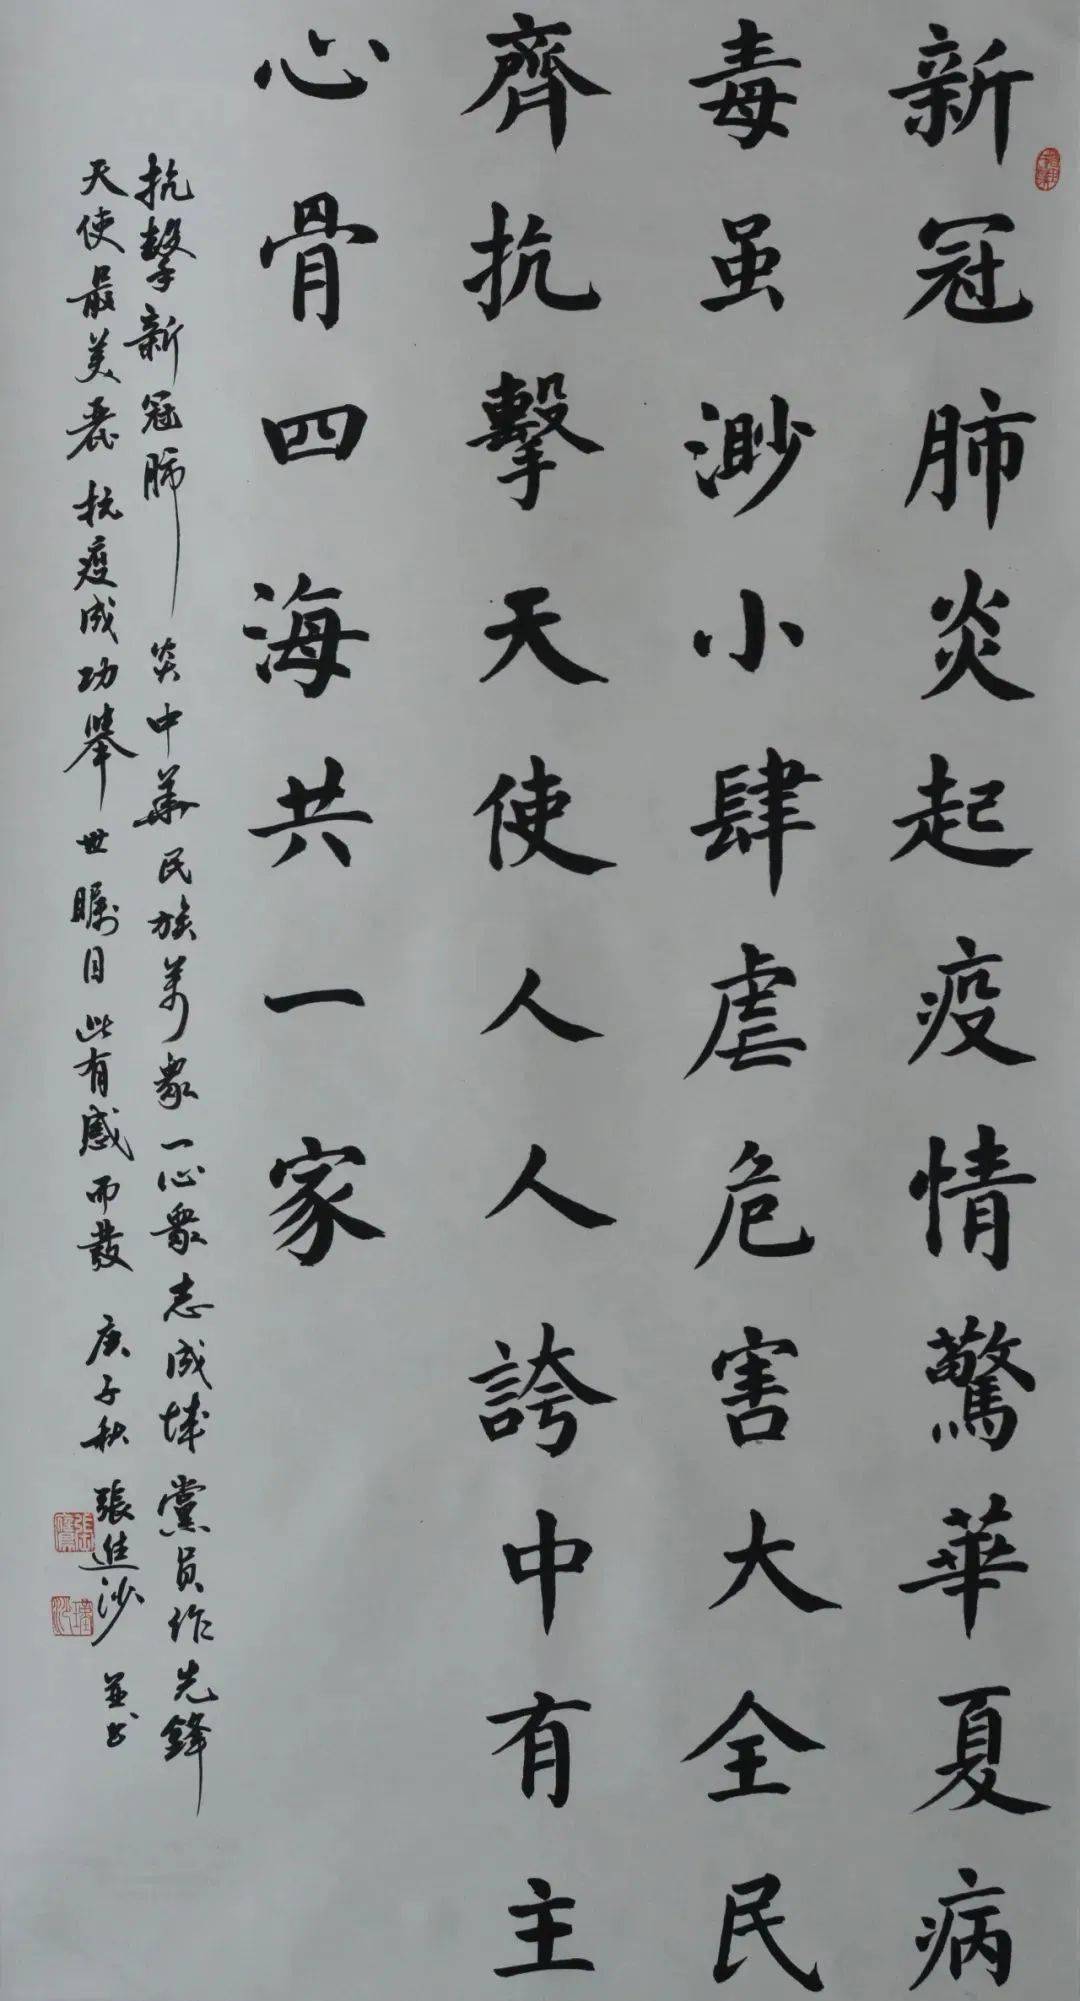 新冠肺炎起疫情驚華夏病
毒虽渺小肆虐危害大全民
齊抗擊天使人人誇中有主
心骨四海共一家
抗擊新冠肺炎中華民族萬眾一心眾志成城黨員作先鋒
天使最美麗抗疫成功舉世瞩目此有感而發 庚子秋 張進沙 並书